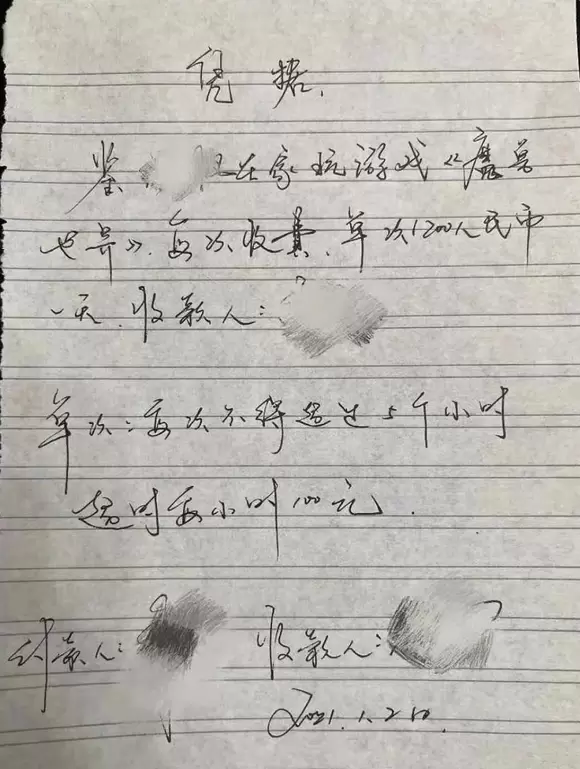 凭据.
鉴 在家玩游戏《魔兽
世界》.每次收费、单次1200人民币
一天.收款人:
单次:每次不得超过5个小时
超时每小时100元.
付款人: 收款人:
2021.1.2